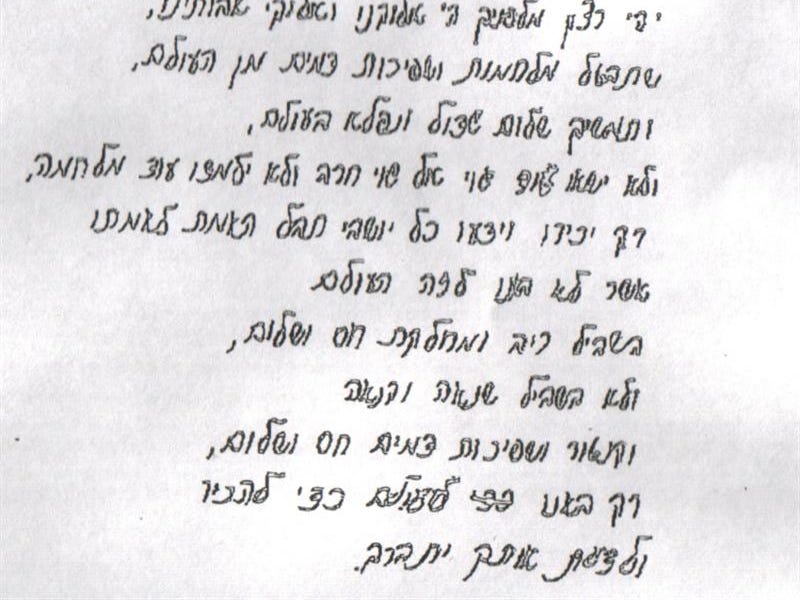 יהי רצון מלפניך ה' אלוקנו ואלוקי אבותינו,
שתבטל מלחמות ושפיכות דמים מן העולם,
ותמשיך שלום גדול ונפלא בעולם,
ולא ישאו גוי אל גוי חרב ולא ילמדו עוד מלחמה,
רק יכירו וידעו כל יושבי תבל האמת לאמתו
אשר לא באנו לזה העולם
בשביל ריב ומחלקת חס ושלום,
ולא בשביל שנאה וקנאה
וקנטור ושפיכות דמים חס ושלום,
רק באנו לעולם כדי להכיר
ולדעת אותך יתברך.